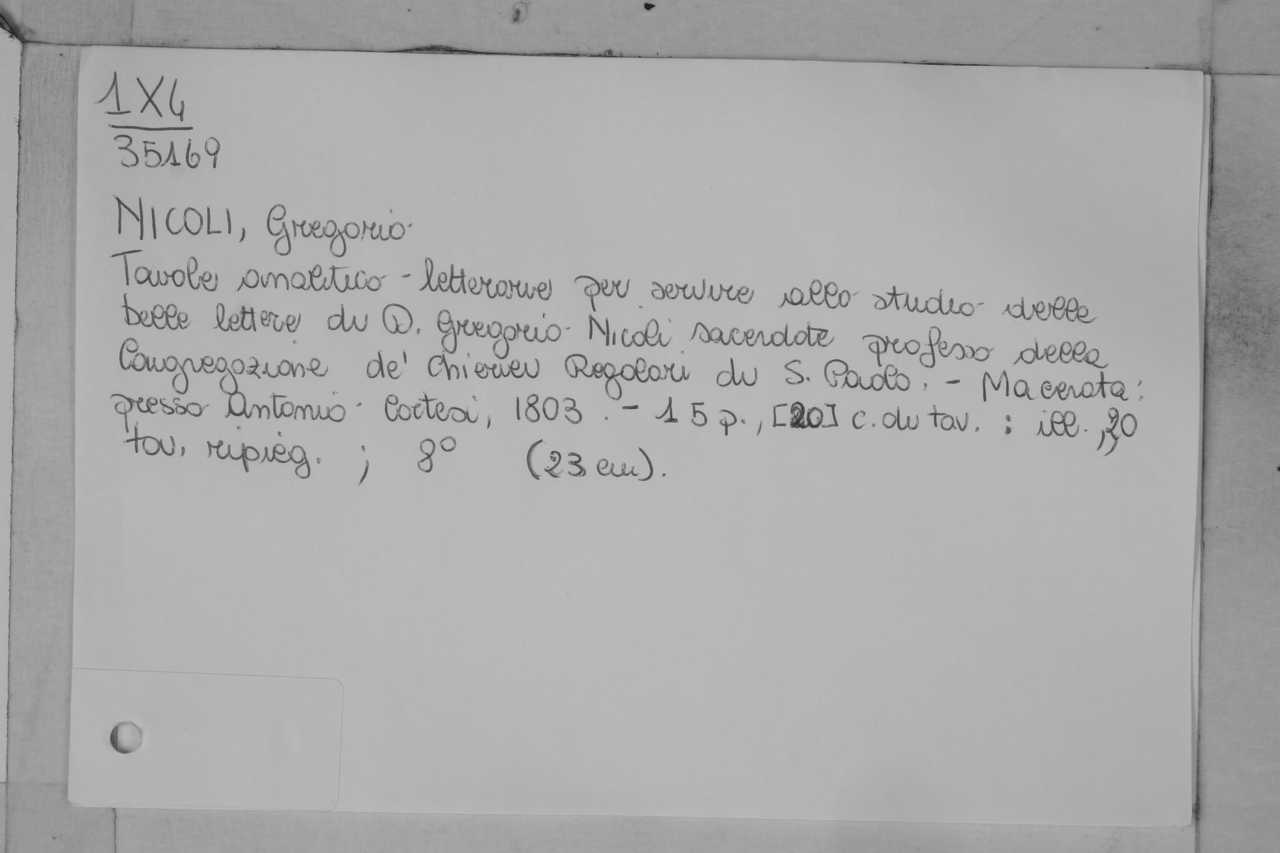 1X4
35169
NICOLI, Gregorio
Tavole analitico-letterarie per servire allo studio delle
belle lettere di D. Gregorio Nicoli sacerdote professo della
Congregazione de' Chierici Regolari di S. Paolo. - Macerata:
presso Antonio Cortesi, 1803. - 15 p., [20] c. di tav. : ill., 20
tav. ripieg. ; 8° (23 cm).